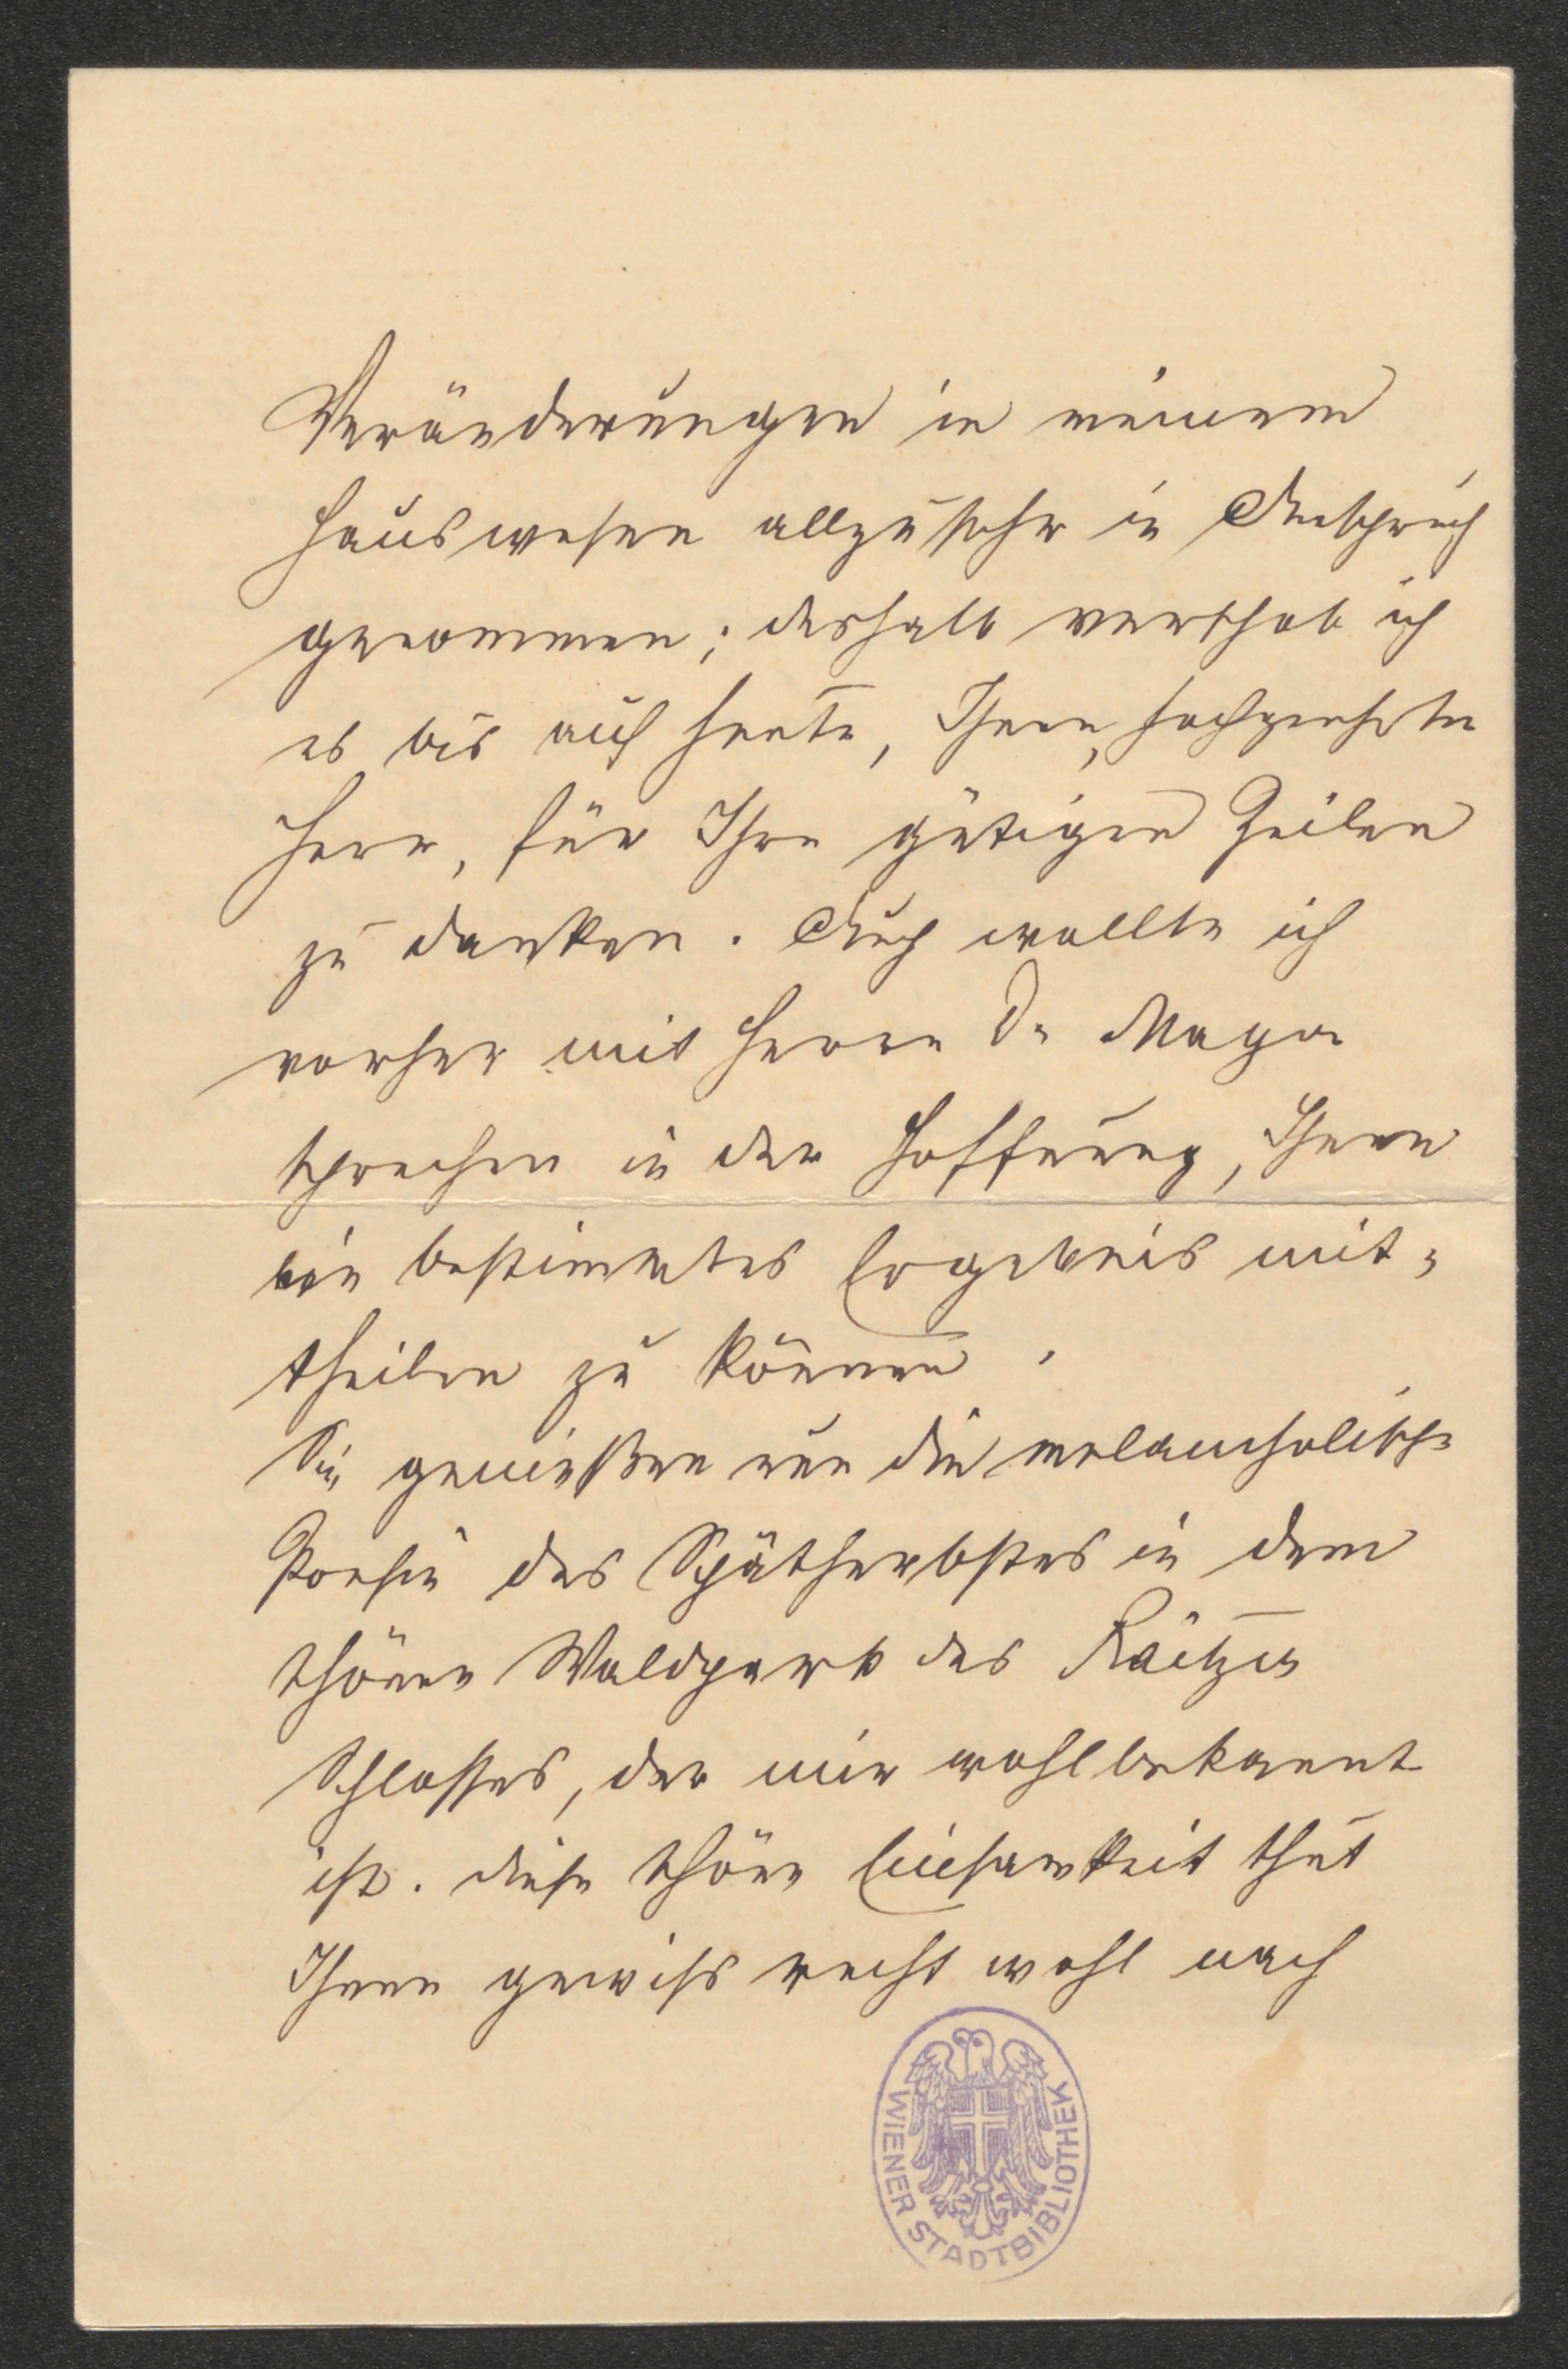 Veränderungen in meinem
Hauswesen allzusehr in Anspruch
genommen; deshalb verschob ich
es bis auf heute, Ihnen, hochgeehrter
Herr, für Ihre gütigen Zeilen
zu danken. Auch wollte ich
vorher mit Herrn Dr Mayer
sprechen in der Hoffnung, Ihnen
ein bestimmtes Ergebnis mit-
theilen zu können.
Sie genießen nun die melancholische
Poesie des Spätherbstes in dem
schönen Waldpark des Raitzer
Schlosses, der mir wohlbekannt
ist. Diese schöne Einsamkeit thut
Ihnen gewiss recht wohl nach
WIENER STADTBIBLIOTHEK